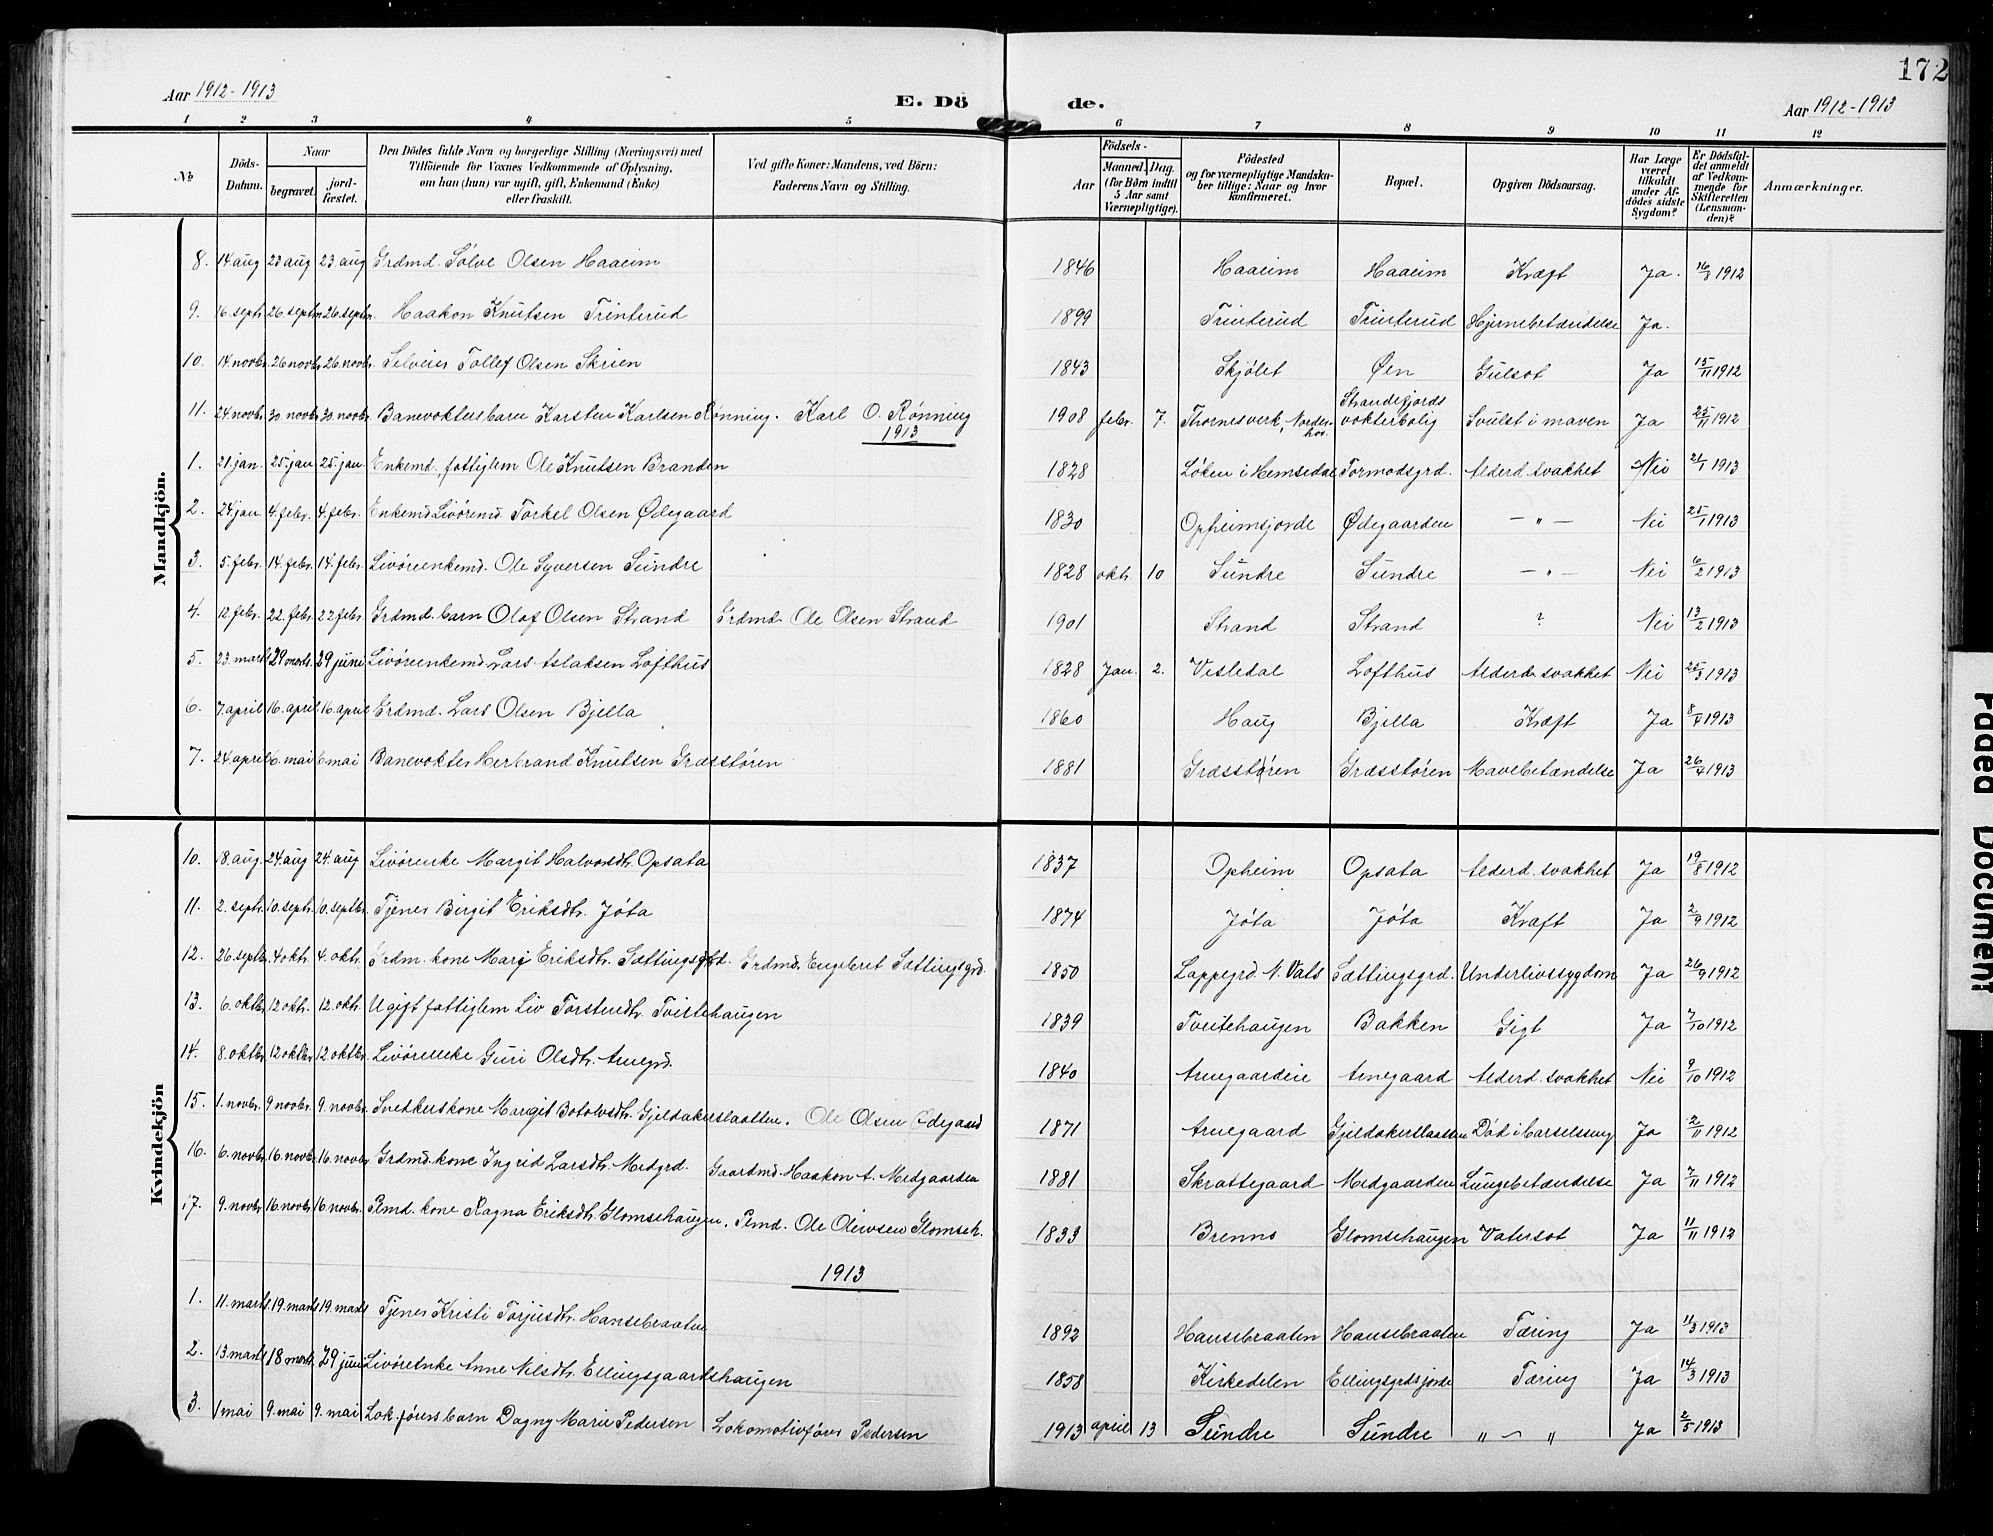 172
Aar 1912-1913
E. Dö
de.
Aar 1912-1913
1 2 3 4 5 6 7 8 9 10 11 12
No
Döds-Datum.
Naar
begravet.
jord-fæstet.
Den Dödes fulde Navn og borgerlige Stilling (Næringsvei) med
Tilföiende for Voxnes Vedkommende af Oplysning,
om han (hun) var ugift, gift, Enkemand (Enke)
eller fraskilt.
Ved gifte Koner: Mandens, ved Börn:
Faderens Navn og Stilling.
Födsels-
Aar
Maaned. Dag.
(for Børn indtil
5 Aar samt
Værnepligtige).
Födested
og for værnepligtige Mandska-
ber tillige: Naar og hvor
konfirmeret.
Bopæl.
Opgiven Dödsaarsag.
Har Læge
været
tilkaldt
under Af-
dödes sidste
Sygdom?
Er Dödsfal-
det anmeldt
af Vedkom-
mende for
Skifteretten
(Lensman-
den)?
Anmærkninger.
Mandkjön.
8. 14 aug 23 aug 23 aug Grdmd. Sølve Olsen Haaeim 1846 Haaeim Haaeim Kræft Ja. 16/8 1912
9. 16 septr. 26. septr. 26. septr. Haakon Knutsen Trinterud 1899 Trinterud Trinterud Hjernebetændelse Ja.
10. 14. novbr. 26 novbr. 26 novbr. Selveier Tollef Olsen Skrien 1843 Skjølet Øen Gulsot Ja 15/11 1912
11. 24. novbr. 30. novbr. 30 novbr. Banevokters barn Karsten Karlsen Rønning. Karl O. Rønning 1908 febr. 7. Thornesverk, Norder-hov. Strandefjords vokterbolig Svulst i maven Ja 25/11 1912
1913
1. 21 jan. 25. jan 25. jan Enkemd. fattiglem Ole Knutsen Branden 1828 Løken i Hemsedal Tormodsgrd. Alderd. svakhet Nei 21/1 1913
2. 24 jan. 4. febr. 4. febr. Enkemd Livørend. Torkel Olsen Ødegaard 1830 Opheimsjorde Ødegaarden — " — Nei 25/1 1913
3. 5. febr. 14. febr. 14. febr. Livørenkemd. Ole Syversen Sundre 1828 okt. 10 Sundre Sundre — " — Nei 6/2 1913
4. 12 febr. 22. febr. 22 febr. Grdmd. barn Olaf Olsen Strand Grdmd. Ole Olsen Strand 1901 Strand Strand ? Nei 13/2 1913
5. 23. marts 29 marts. 29 juni Livørenkemd. Lars Aslaksen Lofthus 1828 Jan. 2. Vesledal Lofthus Alderd. svakhet Nei 25/3 1913
6. 7. april 16. april 16. april Grdmd. Lars Olsen Bjella 1860 Haug Bjella Kræft Ja 8/4 1913
7. 24 april 6. mai 6 mai Banevokter Herbrand Knutsen Græsstøren 1881 Græsstøren Græsstøren Mavebetændelse Ja 26/4 1913
Kvindekjön
10. 18. aug. 24 aug 24. aug Livørenke Margit Halvorsdtr. Opsata 1837 Opheim Opsata Alderd. svakhet Ja 19/8 1912
11. 2. septr. 10. septr. 10. septbr. Tjener Birgit Eriksdtr. Jøta 1874 Jøta Jøta Kræft Ja 2/9 1912
12. 26. septbr. 4. oktr. 4. oktr. Grdm. kone Marg. Eriksdtr. Sættingsgrd. Grdmd. Engebret Sættingsgrd. 1850 Lappegrd. N. Vals Sættingsgrd. Underlivssygdom Ja 26/9 1912
13. 6. oktbr. 12. oktr. 12. oktr. Ugift fattiglem Liv Torstensdtr. Tveitehaugen 1839 Tveitehaugen Bakken Gigt Ja 7/10 1912
14. 8. oktbr. 12 oktbr. 12. oktbr. Livørenke Guri Olsdtr. Arnegrd. 1840 Arnegaardeie Arnegaard Alderd. svakhet Nei 9/10 1912
15. 1. novbr. 9 novbr. 9. novbr. Snedkerskone Margit Botolvsdtr. Gjeldakerslaatten. Ole Olsen Ødegaard 1871 Arnegaard Gjeldakerslaatten Død i barselseng Ja 2/11 1912
16. 6. novbr. 16. novbr. 16. novbr. Grdmd. kone Ingrid Larsdtr. Medgrd. Gaardmd. Haakon A. Medgaarden 1881 Skrattegaard Medgaarden Lungebetændelse Ja 7/11 1912
17. 9. novbr. 16 novbr. 16. novbr. Plmd. kone Ragna Eriksdtr. Glomsehaugen. Plmd. Ole Oleivsen Glomseh. 1833 Brenno Glomsehaugen Vatersot Ja 11/11 1912
1913
1. 11. marts 19. marts 19. marts Tjener Kristi Torjusdtr. Hansebraaten 1892 Hansebraaten Hansebraaten Tæring Ja 11/3 1913
2. 13. marts 18 marts. 29 juni Livørenke Anne Nilsdtr. Ellingsgaardshaugen 1858 Kirkedelen Ellingsgrdsjorde Tæring Ja 14/3 1913
3. 1 mai 9. mai 9. mai Lok. førers barn Dagny Marie Pedersen Lokomotivfører Pedersen 1913 april 13 Sundre Sundre " — " Ja 2/5 1913
Paged Document